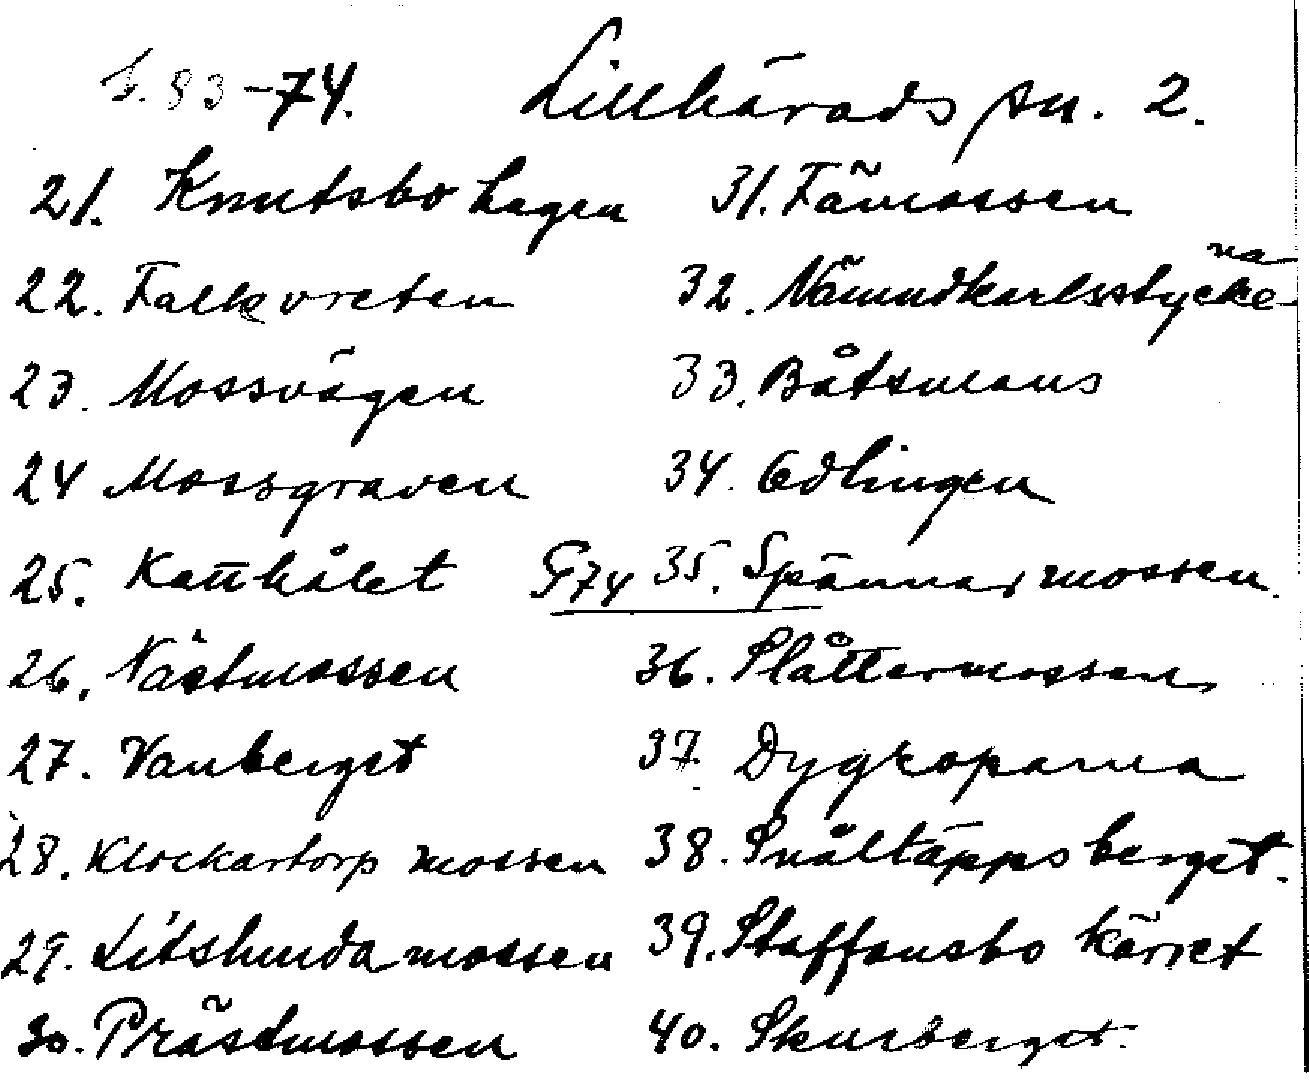 S. 83-74. Lillhärads sn. 2.
21. Knutsbo hagen
22. Falkvreten
23. Mossvägen
24 Mossgraven
25. Katthålet
26. Nästmossen
27. Vanberget
28. Klockartorp mossen
29. Litslunda mossen
30. Prästmossen
31. Fämossen
32. Nämndkarlsstycke-
na
33. Båtsmans
34. Edlingen
G74 35. Spännarmossen.
36. Slåttermossen
37. Dygroparna
38. Snåltäppsberget.
39. Staffansbo kärret
40. Skursberget.